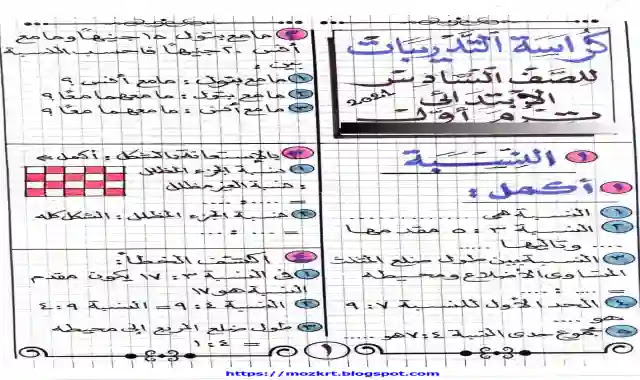 كراسة التدريبات
للصف السادس
الابتدائى
2021
ترم أول
١ النسبة
١ أكمل :
١ النسبة هى ........
٢ النسبة ٣ : ٥ مقدمها
..... وتاليها .....
٣ النسبة بين طول ضلع المثلث
المتساوى الأضلاع ومحيطه
= ..... : .....
٤ الحد الأول للنسبة ٧ : ٩
هو .....
٥ مجموع حدى النسبة ٤ : ٧ هو .....
٢ مامع بتول ١٥ جنيهًا ومامع
أنس ٢٠ جنيهًا فاحسب النسبة
بين :
١ مامع بتول : مامع أنس ؟
٢ مامع بتول : مامعهما معًا ؟
٣ مامع أنس : مامعهما معًا ؟
٣ بالإستعانة بالشكل : أكمل
١ نسبة الجزء المظلل
: نسبة الغير مظلل
= ..... : .....
٢ نسبة الجزء المظلل : الشكل كله
= ..... : .....
٤ أكتشف الخطأ :
١ فى النسبة ٣ : ١٧ يكون مقدم
النسبة هو ١٧
٢ النسبة ٤ : ٩ = النسبة ٩ : ٤
٣ طول ضلع المربع إلى محيطه
= ٤ : ١
١
https://mozkrt.blogspot.com